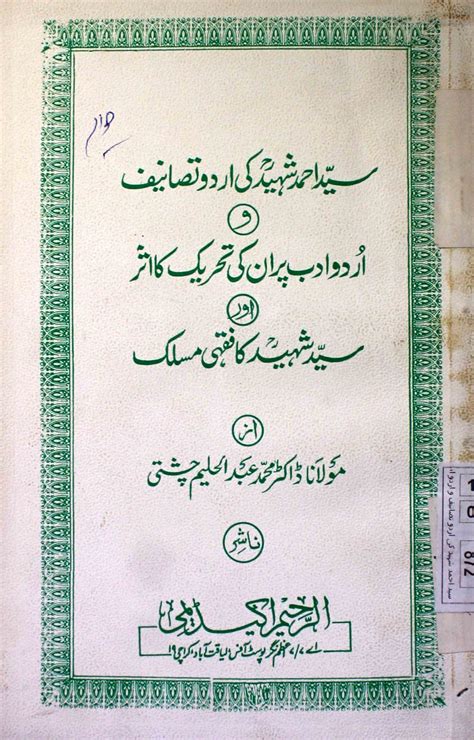 سیّد احمد شہیدؒ کی اردو تصانیف
و
اُردو ادب پر ان کی تحریک کا اثر
اور
سیّد شہیدؒ کا فقہی مسلک
از
مولانا ڈاکٹر محمد عبد الحلیم چشتی
ناشر
الرحیم اکیڈیمی
اے ۷/۷ اعظم نگر پوسٹ آفس لیاقت آباد کراچی ۱۹
سید احمد شہید کی اردو تصانیف و اردو ا
8/2